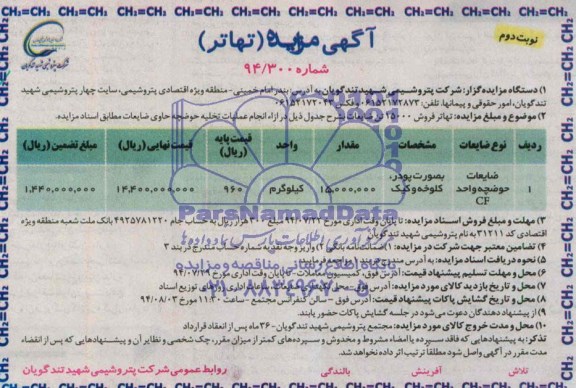 نوبت دوم
آگهی مزایده (تهاتر)
شماره ۹۴/۳۰۰
شرکت پتروشیمی شهید تندگویان
۱) دستگاه مزایده‌گزار: شرکت پتروشیمی شهید تندگویان به آدرس: بندر امام خمینی - منطقه ویژه اقتصادی پتروشیمی، سایت چهار پتروشیمی شهید
تندگویان، امور حقوقی و پیمانها، تلفن: ۰۶۱۵۲۱۷۲۸۷۳ و فکس: ۰۶۱۵۲۱۷۲۰۴۳
۲) موضوع و مبلغ مزایده: تهاتر فروش ۱۵۰۰۰ تن ضایعات بشرح جدول ذیل در ازاء انجام عملیات تخلیه حوضچه حاوی ضایعات مطابق اسناد مزایده.
ردیف نوع ضایعات مشخصات مقدار واحد قیمت پایه (ریال) قیمت نهایی (ریال) مبلغ تضمین (ریال)
۱ ضایعات حوضچه واحد CF بصورت پودر، کلوخه و کیک ۱۵,۰۰۰,۰۰۰ کیلوگرم ۹۶۰ ۱۴,۴۰۰,۰۰۰,۰۰۰ ۱,۴۴۰,۰۰۰,۰۰۰
۳) مهلت و مبلغ فروش اسناد مزایده: تا پایان وقت اداری مورخ ۹۴/۰۷/۲۲ مبلغ هزار ریال به حساب جام ۴۹۲۵۷۸۱۲۲۰ بانک ملت شعبه منطقه ویژه
اقتصادی کد ۳۱۲۱۱ به نام پتروشیمی شهید تندگویان
۴) تضامین معتبر جهت شرکت در مزایده: ۱) ضمانتنامه بانکی ۲) واریز وجه نقد به شماره حساب مندرج در بند ۳
۵) نحوه دریافت اسناد مزایده: به آدرس مندرج در بند ۱ مراجعه فرمایند.
۶) محل و مهلت تسلیم پیشنهاد قیمت: آدرس فوق، کمیسیون معاملات - تا پایان وقت اداری مورخ ۹۴/۰۷/۲۹
۷) محل و تاریخ بازدید کالای مورد مزایده: آدرس فوق - محل روزهای توزیع اسناد
۸) محل و تاریخ گشایش پاکات پیشنهاد قیمت: آدرس فوق - سالن کنفرانس مجتمع - ساعت ۱۱:۳۰ مورخ ۹۴/۰۸/۰۳
۹) از پیشنهاد دهندگان دعوت می‌شود در جلسه گشایش پاکات حضور یابند.
۱۰) محل و مدت خروج کالای مورد مزایده: مجتمع پتروشیمی شهید تندگویان - ۳۶ ماه پس از انعقاد قرارداد
تذکر: به پیشنهادهایی که فاقد سپرده یا امضاء مشروط و مخدوش و سپرده‌های کمتر از میزان مقرر، چک شخصی و نظایر آن و پیشنهادهایی که پس از انقضاء
مدت مقرر در آگهی واصل شود مطلقاً ترتیب اثر داده نخواهد شد.
تلاش آفرینش بالندگی
روابط عمومی شرکت پتروشیمی شهید تندگویان
ParsNamadData
پایگاه اطلاع رسانی مناقصه و مزایده
۰۲۱-۸۸۳۴۹۶۷۰-۵
CH₂=CH₂